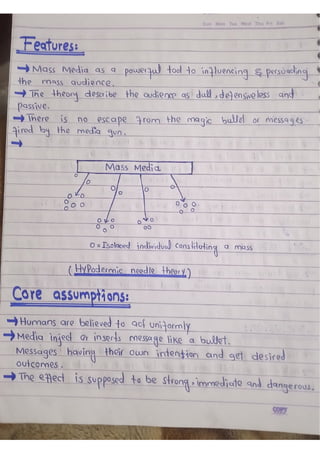 Sun Mon Tue Wed Thu Fri Sat
Features:
→ Mass Media as a powerful tool to influencing & persuading
the mass audience.
→ The theory describe the audience as dull, defensiveless and
passive.
→ There is no escape from the magic bullet or messages
fired by the media gun.
→
Mass Media
O = Isolated individual constituting a mass
(Hypodermic needle theory)
Core assumptions:
→ Humans are believed to act uniformly
→ Media inject or inserts message like a bullet.
Messages having their own intention and get desired
outcomes.
→ The effect is supposed to be strong, immediate and dangerous.